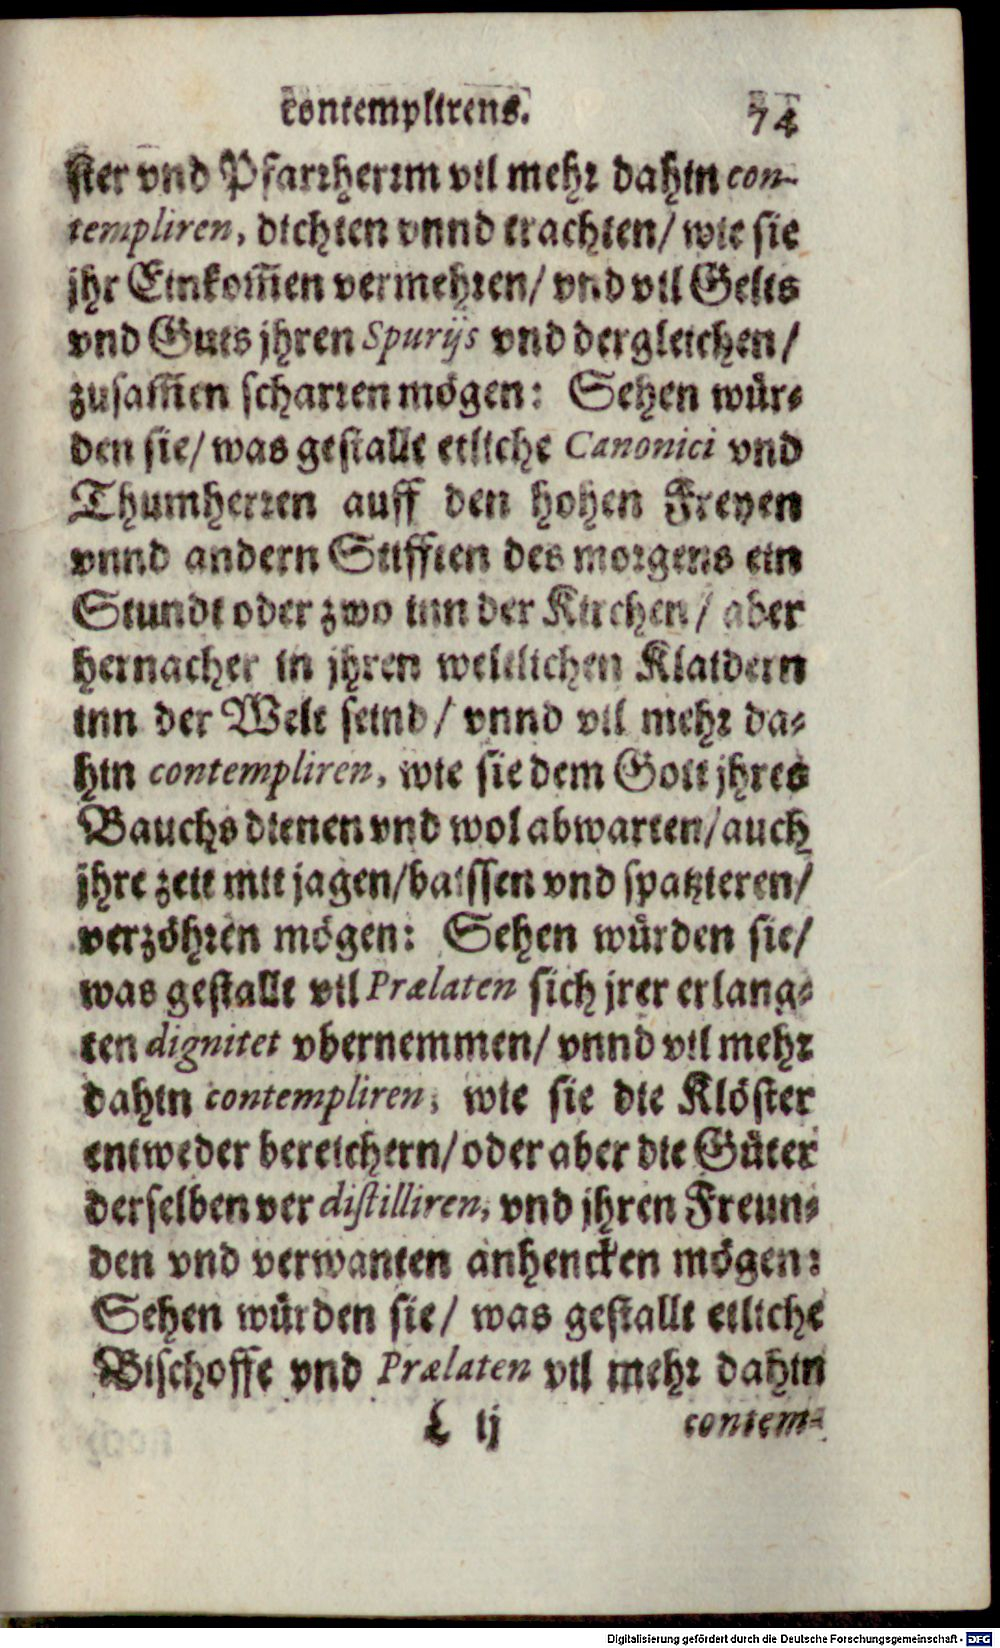 contemplirens. 74
ster vnd Pfarrherrm vil mehr dahin con-
templiren, dichten vnnd trachten/ wie sie
jhr Einkom̃en vermehren/ vnd vil Gelts
vnd Guts jhren Spurijs vnd dergleichen/
zusam̃en scharren mögen: Sehen wür-
den sie/ was gestallt etliche Canonici vnd
Thumherren auff den hohen Freyen
vnnd andern Stifften des morgens ein
Stundt oder zwo inn der Kirchen/ aber
hernacher in jhren weltlichen Klaidern
inn der Welt seind/ vnnd vil mehr da-
hin contempliren, wie sie dem Gott jhres
Bauchs dienen vnd wol abwarten/ auch
jhre zeit mit jagen/ baissen vnd spatzieren/
verzöhren mögen: Sehen würden sie/
was gestallt vil Prælaten sich jrer erlang-
ten dignitet vbernemmen/ vnnd vil mehr
dahin contempliren, wie sie die Klöster
entweder bereichern/ oder aber die Güter
derselben ver distilliren, vnd jhren Freun-
den vnd verwanten anhencken mögen:
Sehen würden sie/ was gestallt etliche
Bischoffe vnd Prælaten vil mehr dahin
L ij contem-
Digitalisierung gefördert durch die Deutsche Forschungsgemeinschaft - DFG